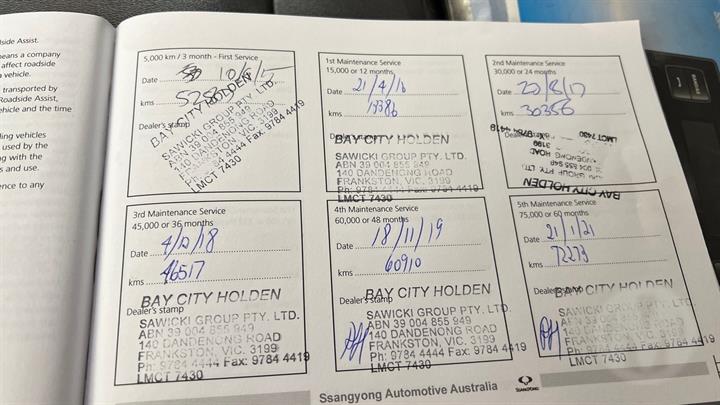 dside Assist.
eans a company
affect roadside
vehicle.
transported by
Roadside Assist,
ehicle and the time
ling vehicles
used by the
ng with the
s and use.
ence to any
5,000 km / 3 month - First Service
Date 10/6/15
kms
Dealer's stamp
BAY CITY HOLDEN
SAWICKI GROUP PTY. LTD.
ABN 39 004 855 949
140 DANDENONG ROAD
FRANKSTON, VIC. 3199
Ph: 9784 4444 Fax: 9784 4419
LMCT 7430
1st Maintenance Service
15,000 or 12 months
Date 21/4/16
kms
Dealer's stamp
BAY CITY HOLDEN
SAWICKI GROUP PTY. LTD.
ABN 39 004 855 949
140 DANDENONG ROAD
FRANKSTON, VIC. 3199
Ph: 9784 4444 Fax: 9784 4419
LMCT 7430
2nd Maintenance Service
30,000 or 24 months
Date
kms 30356
LMCT 7430
3199
BAY CITY HOLDEN
3rd Maintenance Service
45,000 or 36 months
Date 4/12/18
kms 46517
Dealer's stamp
BAY CITY HOLDEN
SAWICKI GROUP PTY. LTD.
ABN 39 004 855 949
140 DANDENONG ROAD
FRANKSTON, VIC. 3199
Ph: 9784 4444 Fax: 9784 4419
LMCT 7430
4th Maintenance Service
60,000 or 48 months
Date 18/11/19
kms 60910
Dealer's stamp
BAY CITY HOLDEN
SAWICKI GROUP PTY. LTD.
ABN 39 004 855 949
140 DANDENONG ROAD
FRANKSTON, VIC. 3199
Ph: 9784 4444 Fax: 9784 4419
LMCT 7430
5th Maintenance Service
75,000 or 60 months
Date 21/1/21
kms 72273
Dealer's stamp
BAY CITY HOLDEN
SAWICKI GROUP PTY. LTD.
ABN 39 004 855 949
140 DANDENONG ROAD
FRANKSTON, VIC. 3199
Ph: 9784 4444 Fax: 9784 4419
LMCT 7430
Ssangyong Automotive Australia
SSANGYONG